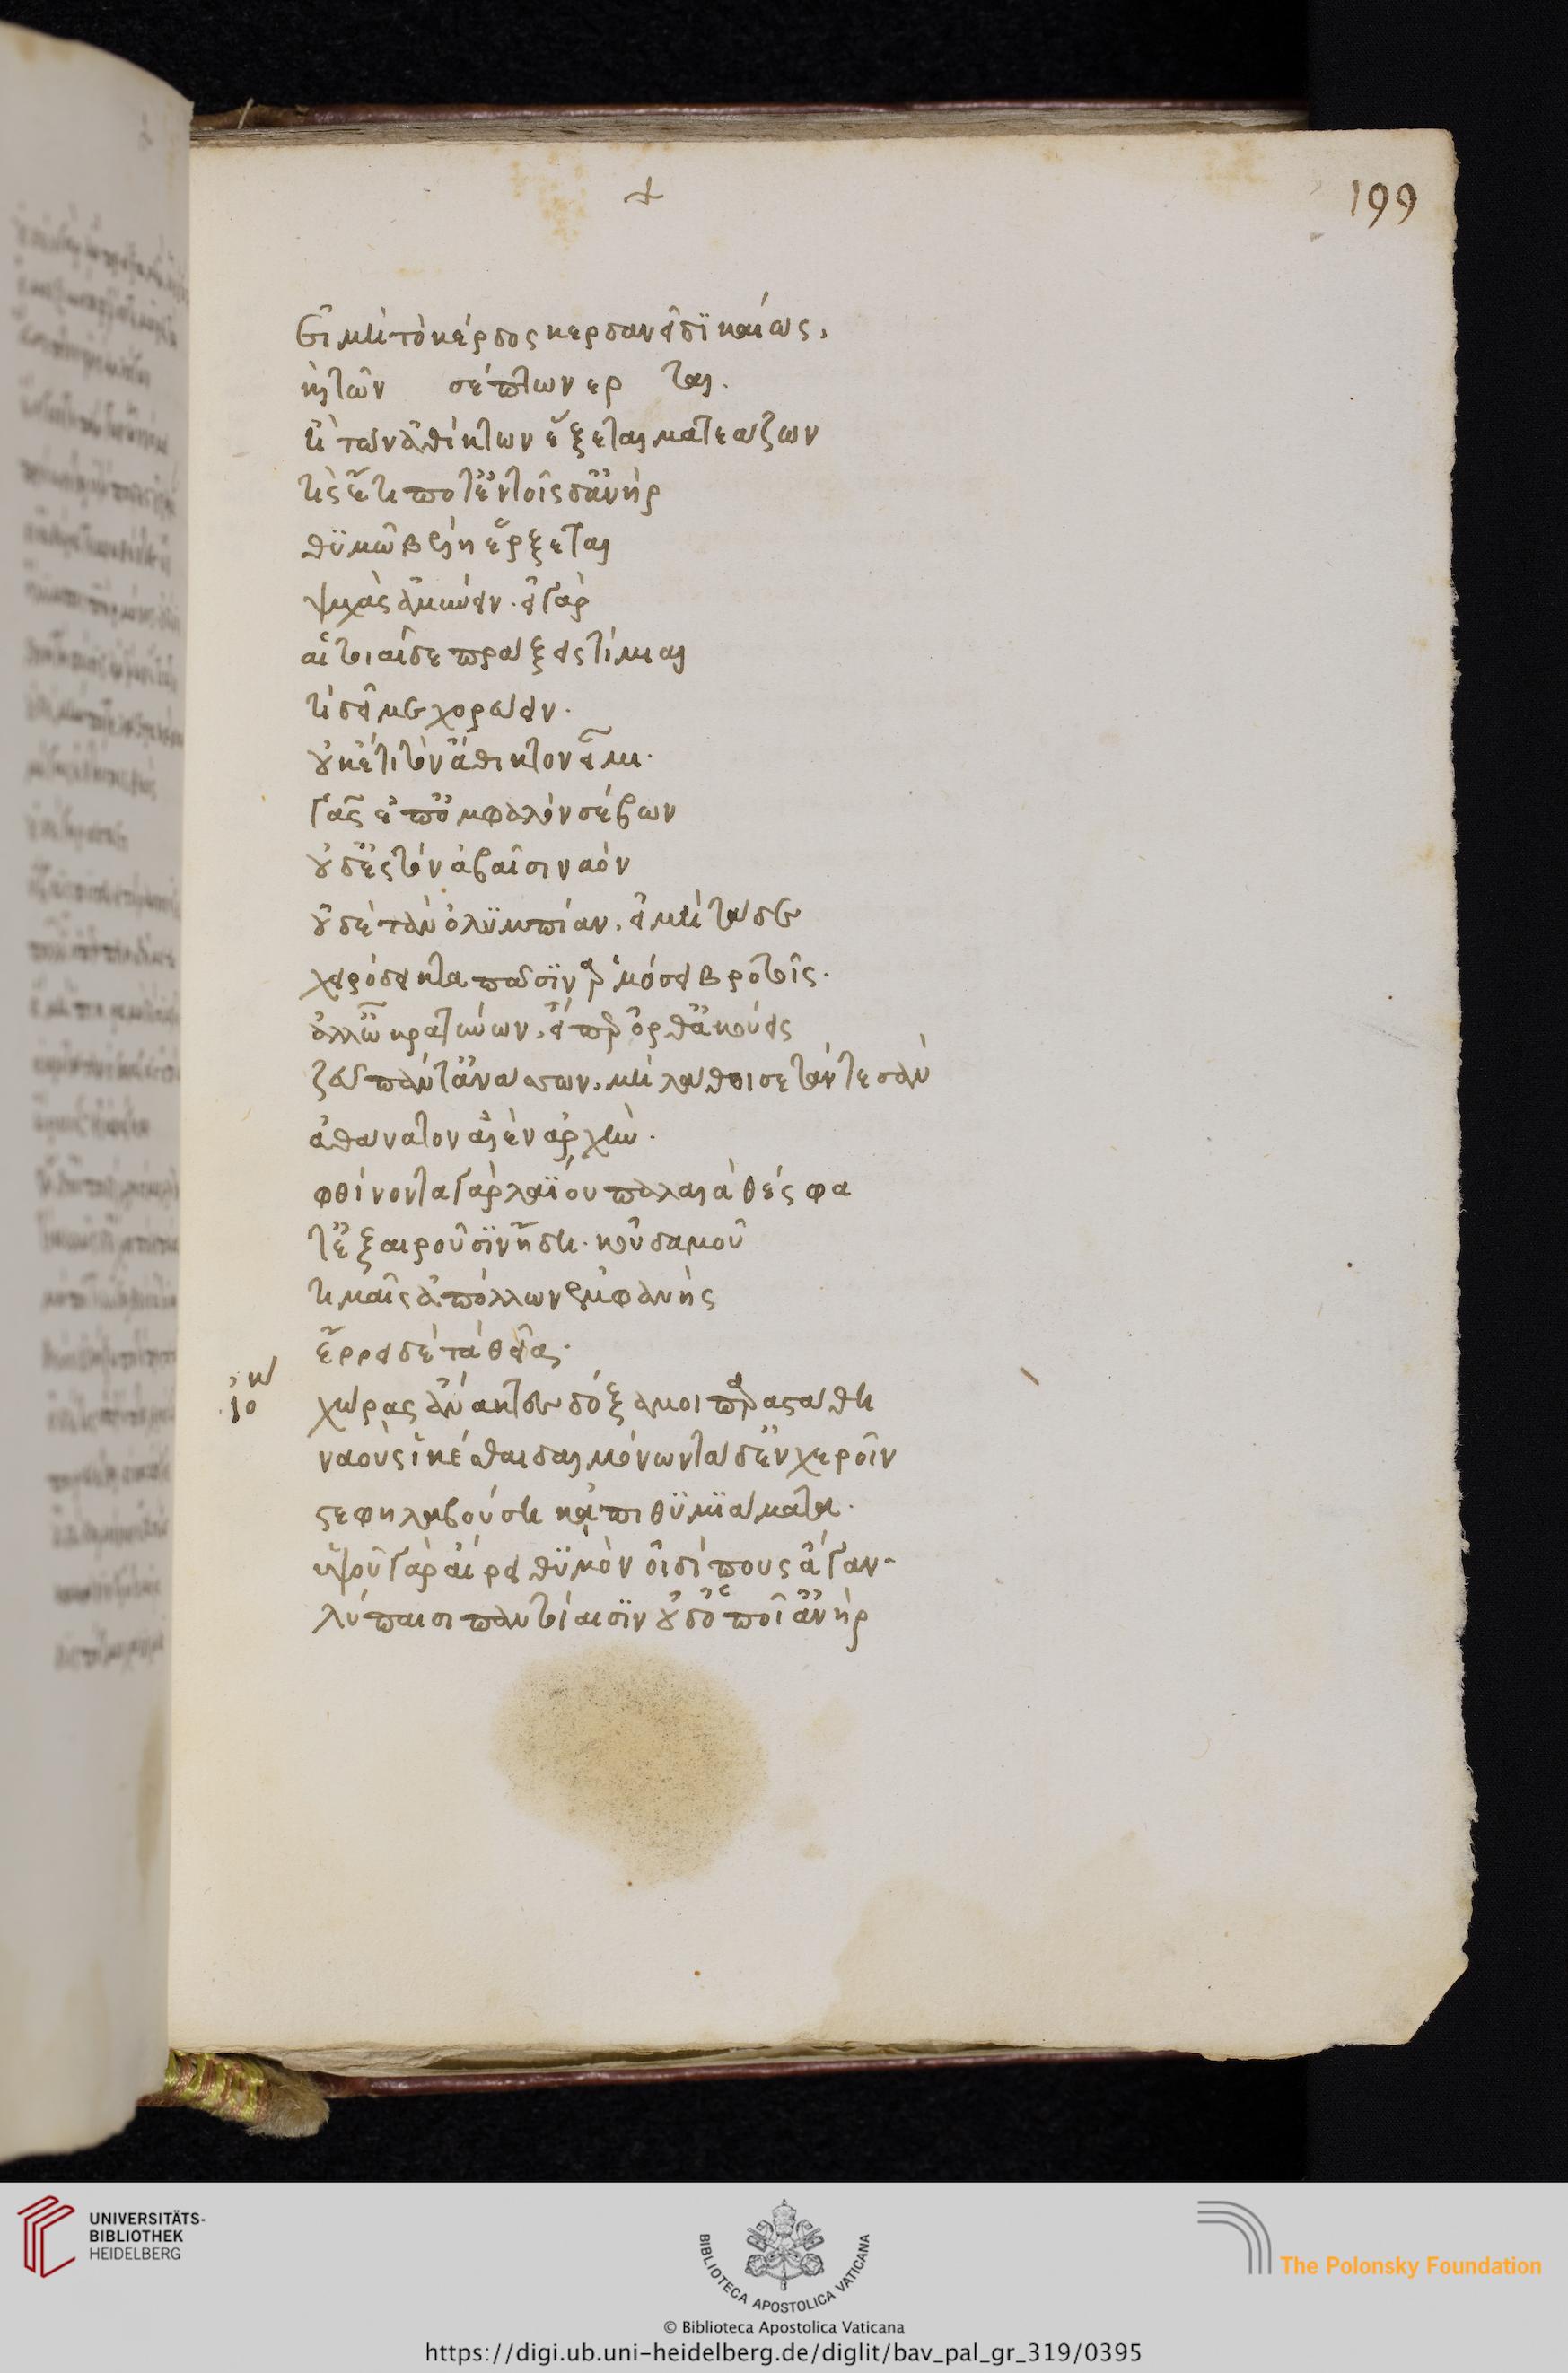 199
εἰ μὴ τὸ κέρδος κερδανεῖ δικαίως,
καὶ τῶν σέπτων ερ ται.
ἢ τῶν ἀθίκτων ἕξεται ματάζων
τίς ἔτι ποτ' ἐν τοῖσδ' ἀνὴρ
θυμῶ βέλη ἔρξεται
ψυχᾶς ἀμύνειν. εἰ γὰρ
αἱ τοιαίδε πράξεις τίμιαι
τί δεῖ με χορεύειν.
οὐκέτι τὸν ἄθικτον εἶμι.
γᾶς ἐπ' ὀμφαλὸν σέβων
οὐδ' ἐς τὸν ἀβαῖσι ναὸν
οὐδὲ τὰν ὀλυμπίαν, εἰ μὴ τάδε
χειρόδεικτα πᾶσιν ἁρμόσει βροτοῖς.
ἀλλ' ὦ κρατύνων, εἴπερ ὀρθ' ἀκούεις
ζεῦ πάντ' ἀνάσσων, μὴ λάθοι σε τάν τε σὰν
ἀθάνατον αἰὲν ἀρχὰν.
φθίνοντα γὰρ λαΐου παλαιὰ θέσφα
τ' ἐξαιροῦσιν ἤδη. κοὐδαμοῦ
τιμαῖς ἀπόλλων ἐμφανὴς
ἔρρει δὲ τὰ θεῖα.
ιο χώρας ἄνακτες δόξα μοι παρεστάθη
ναοὺς ἱκέσθαι δαιμόνων τάδ' ἐν χεροῖν
στέφη λαβούση κἀπιθυμιάματα.
ὑψοῦ γὰρ αἴρει θυμὸν οἰδίπους ἄγαν
λύπαισι παντοίαισιν οὐδ' ὁποῖ' ἀνὴρ
UNIVERSITÄTS-
BIBLIOTHEK
HEIDELBERG
BIBLIOTECA APOSTOLICA VATICANA
The Polonsky Foundation
© Biblioteca Apostolica Vaticana
https://digi.ub.uni-heidelberg.de/diglit/bav_pal_gr_319/0395